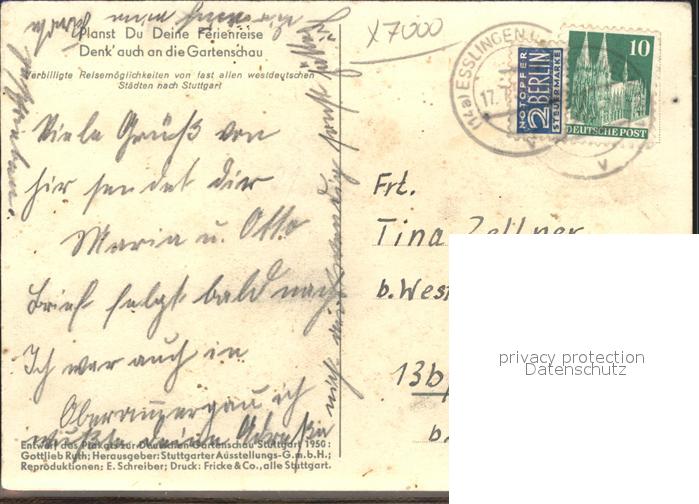 Planst Du Deine Ferienreise
Denk' auch an die Gartenschau
Verbilligte Reisemöglichkeiten von fast allen westdeutschen
Städten nach Stuttgart
x7000
(14a) ESSLINGEN
17.7
NOTOPFER
2 BERLIN
STEUERMARKE
10
DEUTSCHE POST
Viele Grüß von
hir sendet dir
Maria u. Otto
Brief folgt bald nach
Ich war auch in
Oberammergau ich
wußte deine Adreße
nicht
Frt.
Tina Zellner
b. West
13b
b.
privacy protection
Datenschutz
Entwurf des Plakats zur Deutschen Gartenschau Stuttgart 1950:
Gottlieb Ruth; Herausgeber: Stuttgarter Ausstellungs-G.m.b.H.;
Reproduktionen; E. Schreiber; Druck: Fricke & Co., alle Stuttgart.